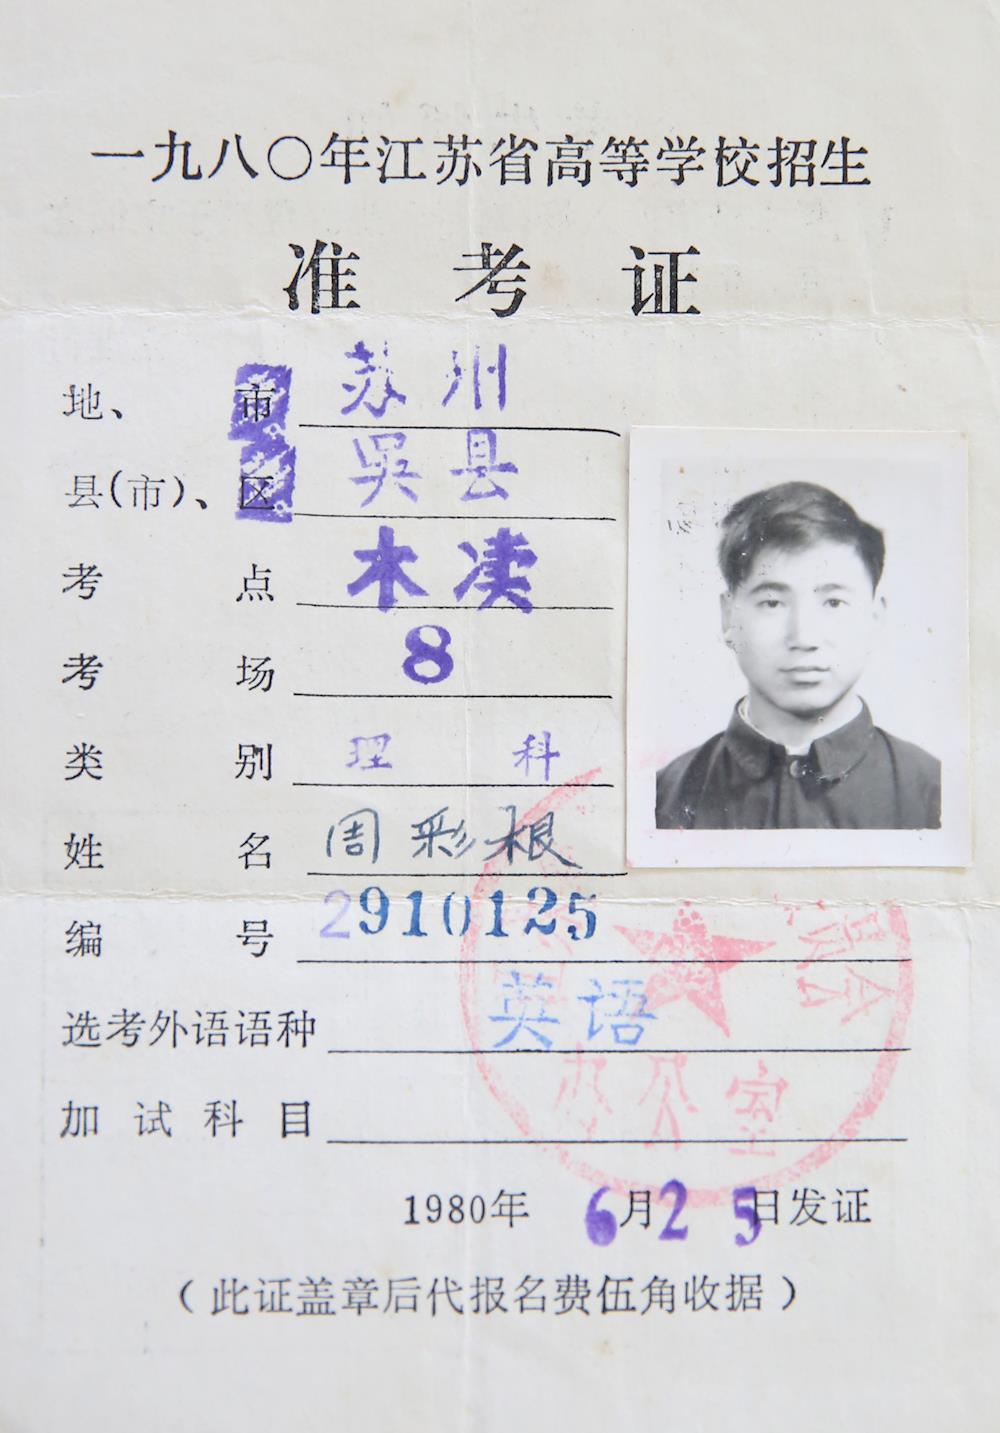 一九八〇年江苏省高等学校招生
准考证
地、市 苏州
县(市)、区 吴县
考点 木渎
考场 8
类别 理科
姓名 周彩根
编号 2910125
选考外语语种 英语
加试科目
办公室
1980年6月25日发证
(此证盖章后代报名费伍角收据)